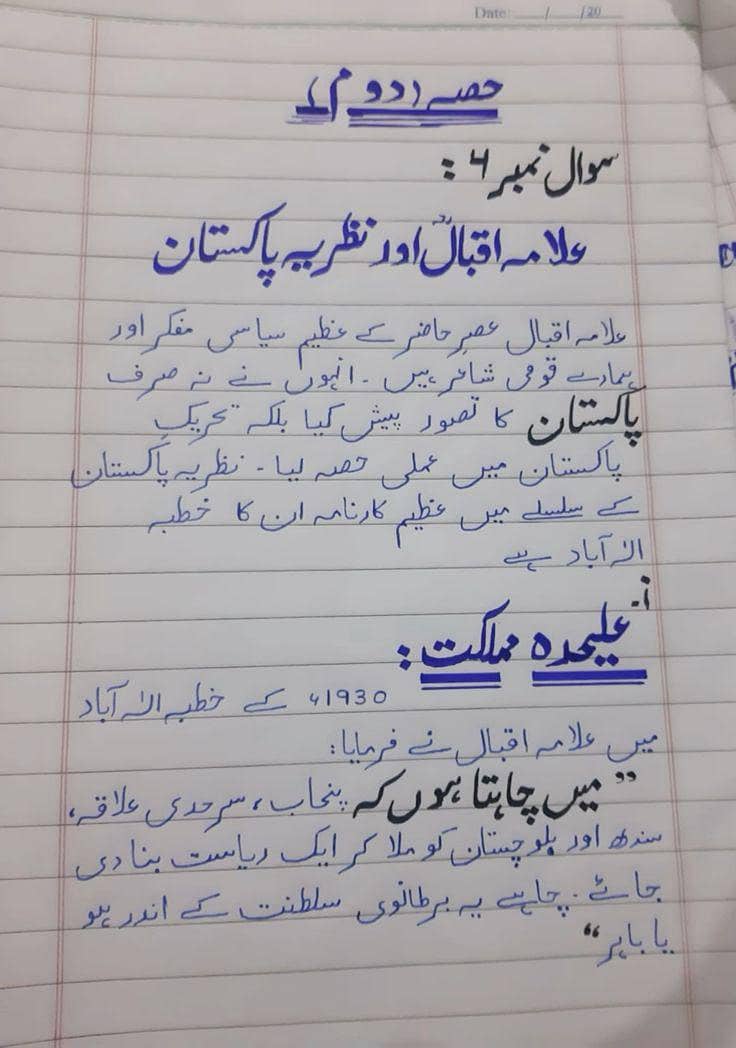 Date: ___/___/20___
حصہ (دوم)
سوال نمبر ۶ :
علامہ اقبالؒ اور نظریہ پاکستان
علامہ اقبال عصرِ حاضر کے عظیم سیاسی مفکر اور
ہمارے قومی شاعر ہیں ۔ انہوں نے نہ صرف
پاکستان کا تصور پیش کیا بلکہ تحریکِ
پاکستان میں عملی حصہ لیا ۔ نظریہ پاکستان
کے سلسلے میں عظیم کارنامہ ان کا خطبہ
الہٰ آباد ہے
علیحدہ مملکت :
1930ء کے خطبہ الہٰ آباد
میں علامہ اقبال نے فرمایا:
”میں چاہتا ہوں کہ پنجاب، سرحدی علاقہ،
سندھ اور بلوچستان کو ملا کر ایک ریاست بنا دی
جائے ۔ چاہے یہ برطانوی سلطنت کے اندر ہو
یا باہر“